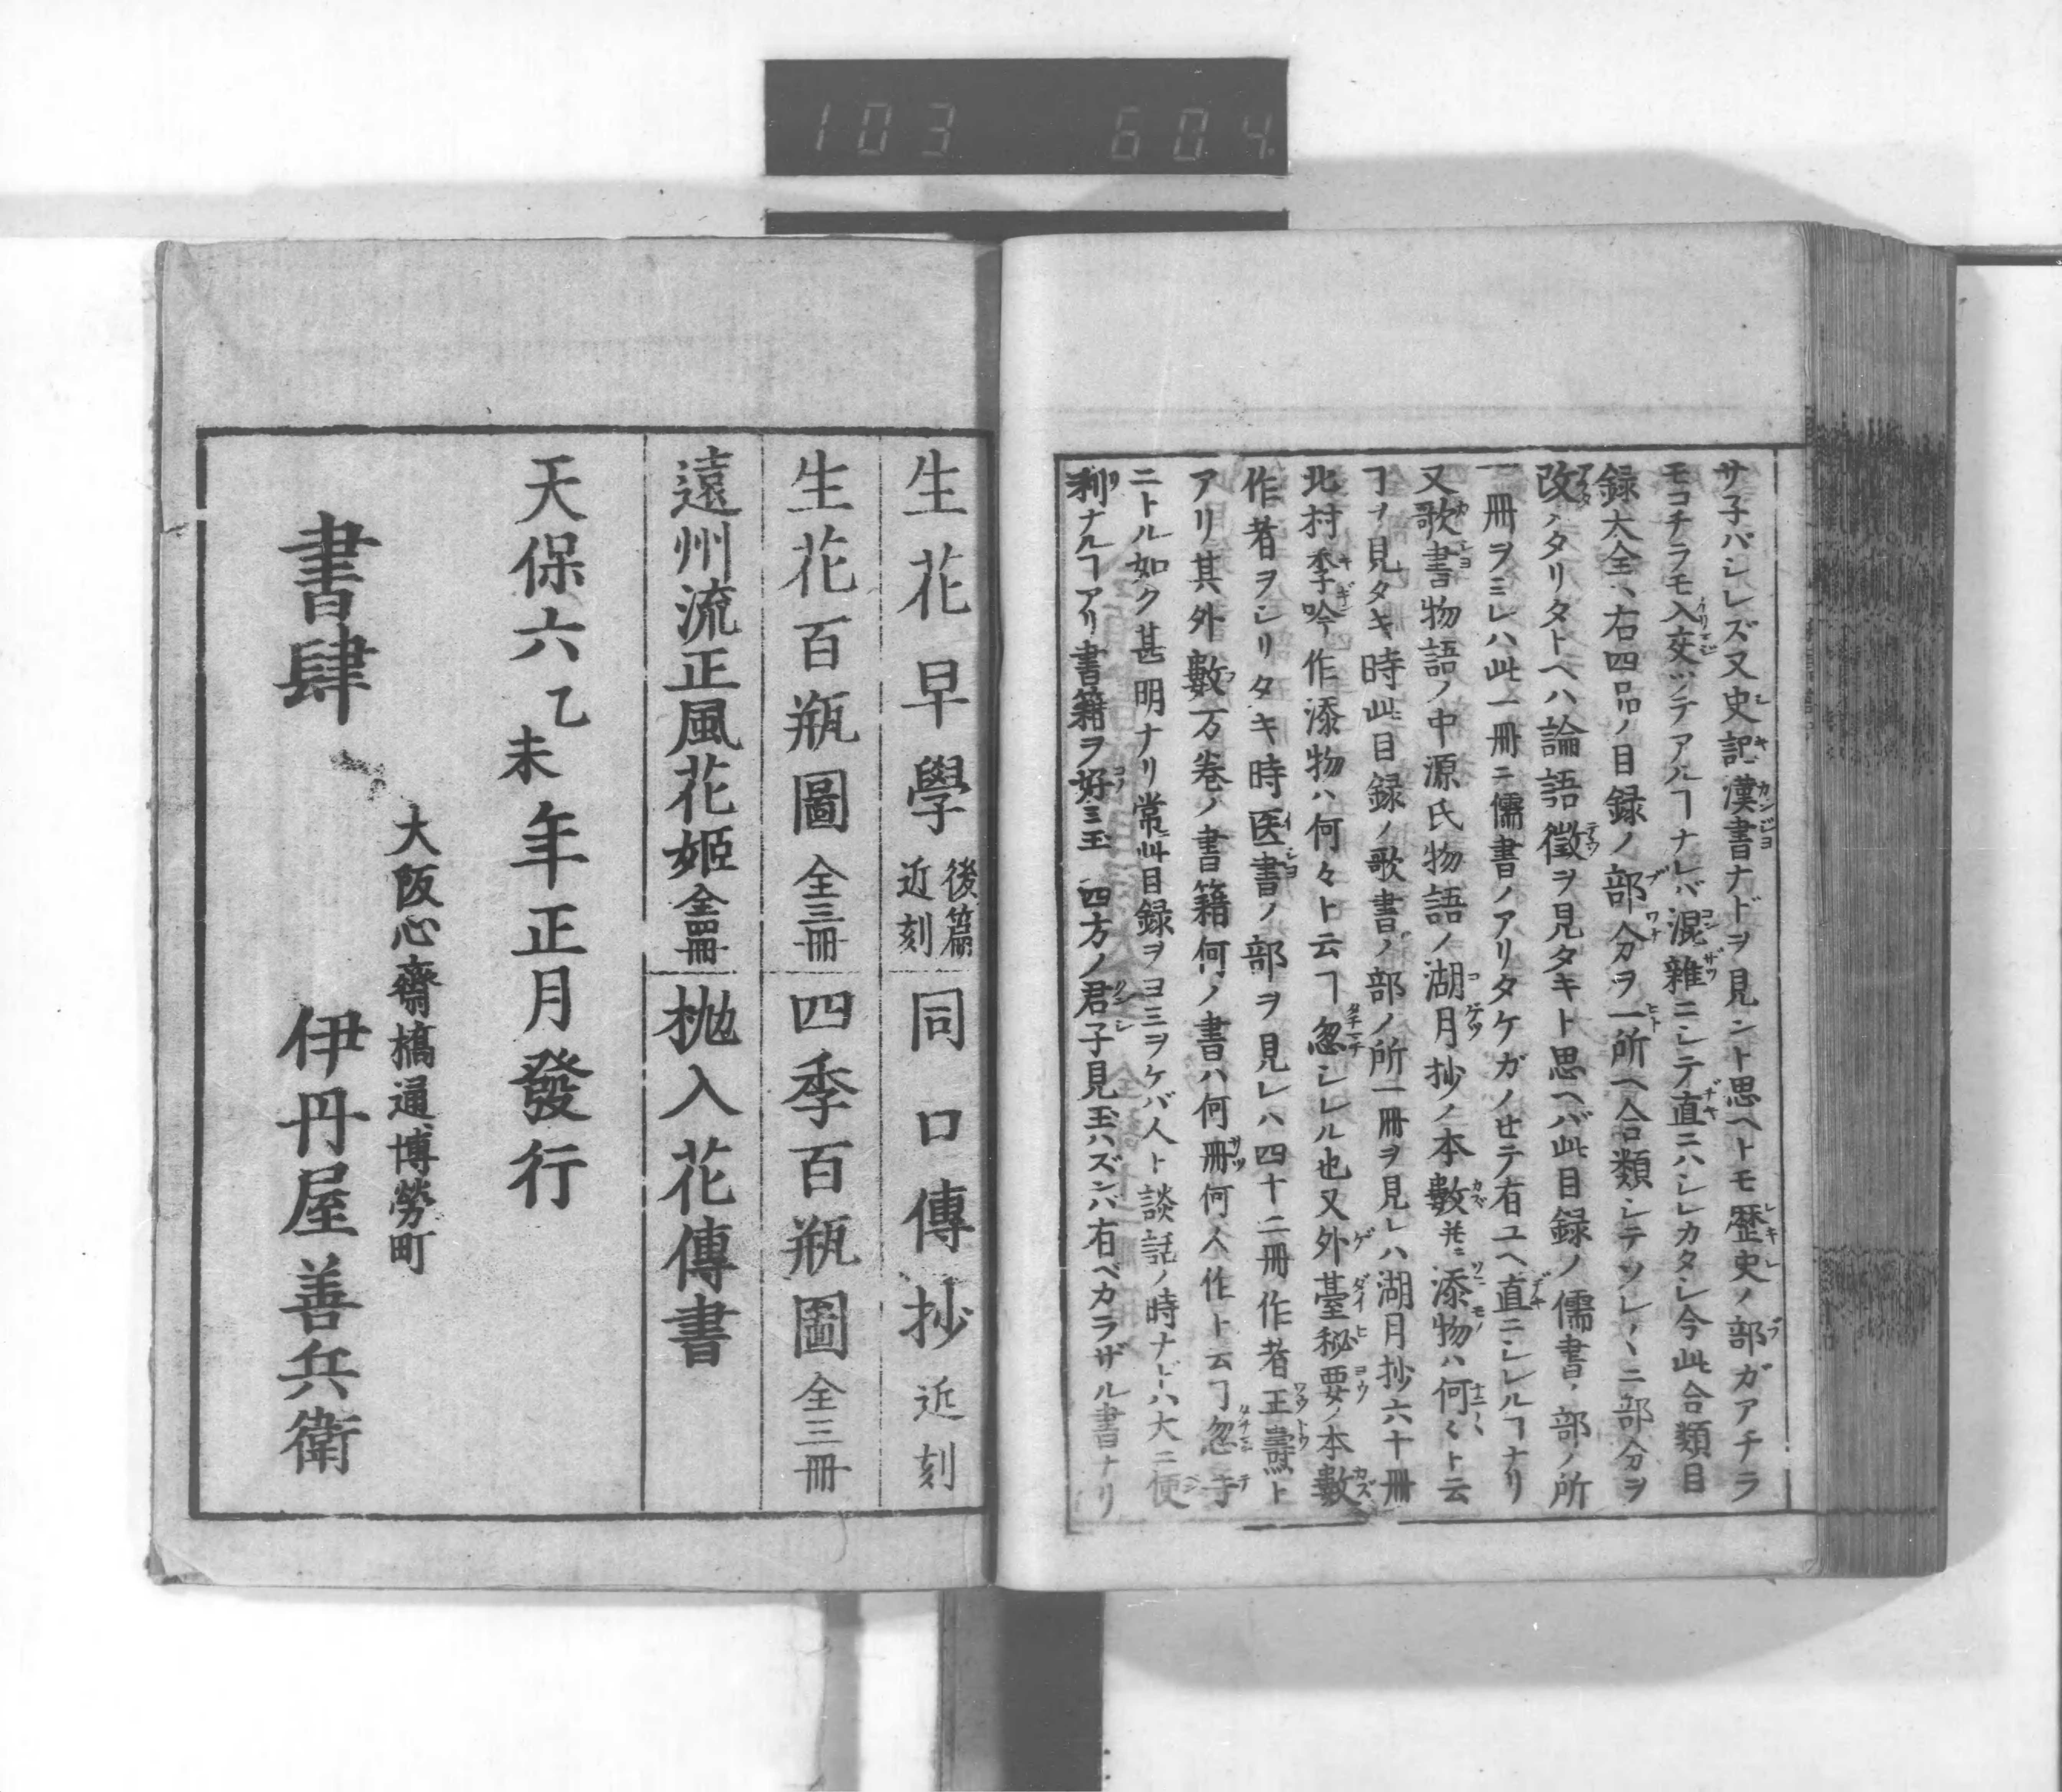 103 604.
サ子バシレズ又史記漢書ナドヲ見ント思ヘトモ歴史ノ部ガアチラ
モコチラモ入交ッテアルヿナレバ混雜ニシテ直ニハシレカタシ今此合類目
録大全ハ右四品ノ目録ノ部分ヲ一所ヘ合類シテソレ〳〵ニ部分ヲ
改ノタリタトヘハ論語徵ヲ見タキト思ヘバ此目録ノ儒書ノ部ノ所
一冊ヲミレハ此一冊ニ儒書ノアリタケガノセテ有ユヘ直ニシレルヿナリ
又歌書物語ノ中源氏物語ノ湖月抄ノ本數并ニ添物ハ何〳〵ト云
ヿヲ見タキ時此目録ノ歌書ノ部ノ所一冊ヲ見レハ湖月抄六十冊
北村季吟作添物ハ何々ト云ヿ忽シレル也又外臺秘要ノ本數
作者ヲシリタキ時医書ノ部ヲ見レハ四十二冊作者王燾ト
アリ其外數万卷ノ書籍何ノ書ハ何冊何人作ト云ヿ忽手
ニトル如ク甚明ナリ常ニ此目録ヲヨミヲケバ人ト談話ノ時ナドハ大ニ便
利ナルヿアリ書籍ヲ好ミ玉 四方ノ君子見玉ハズンハ有ベカラザル書ナリ
生花早學 後篇近刻
同口傳抄 近刻
生花百瓶圖 全三冊
四季百瓶圖 全三冊
遠州流正風花姬 全四冊
抛入花傳書
天保六乙未年正月發行
大阪心齋橋通博勞町
書肆 伊丹屋善兵衛